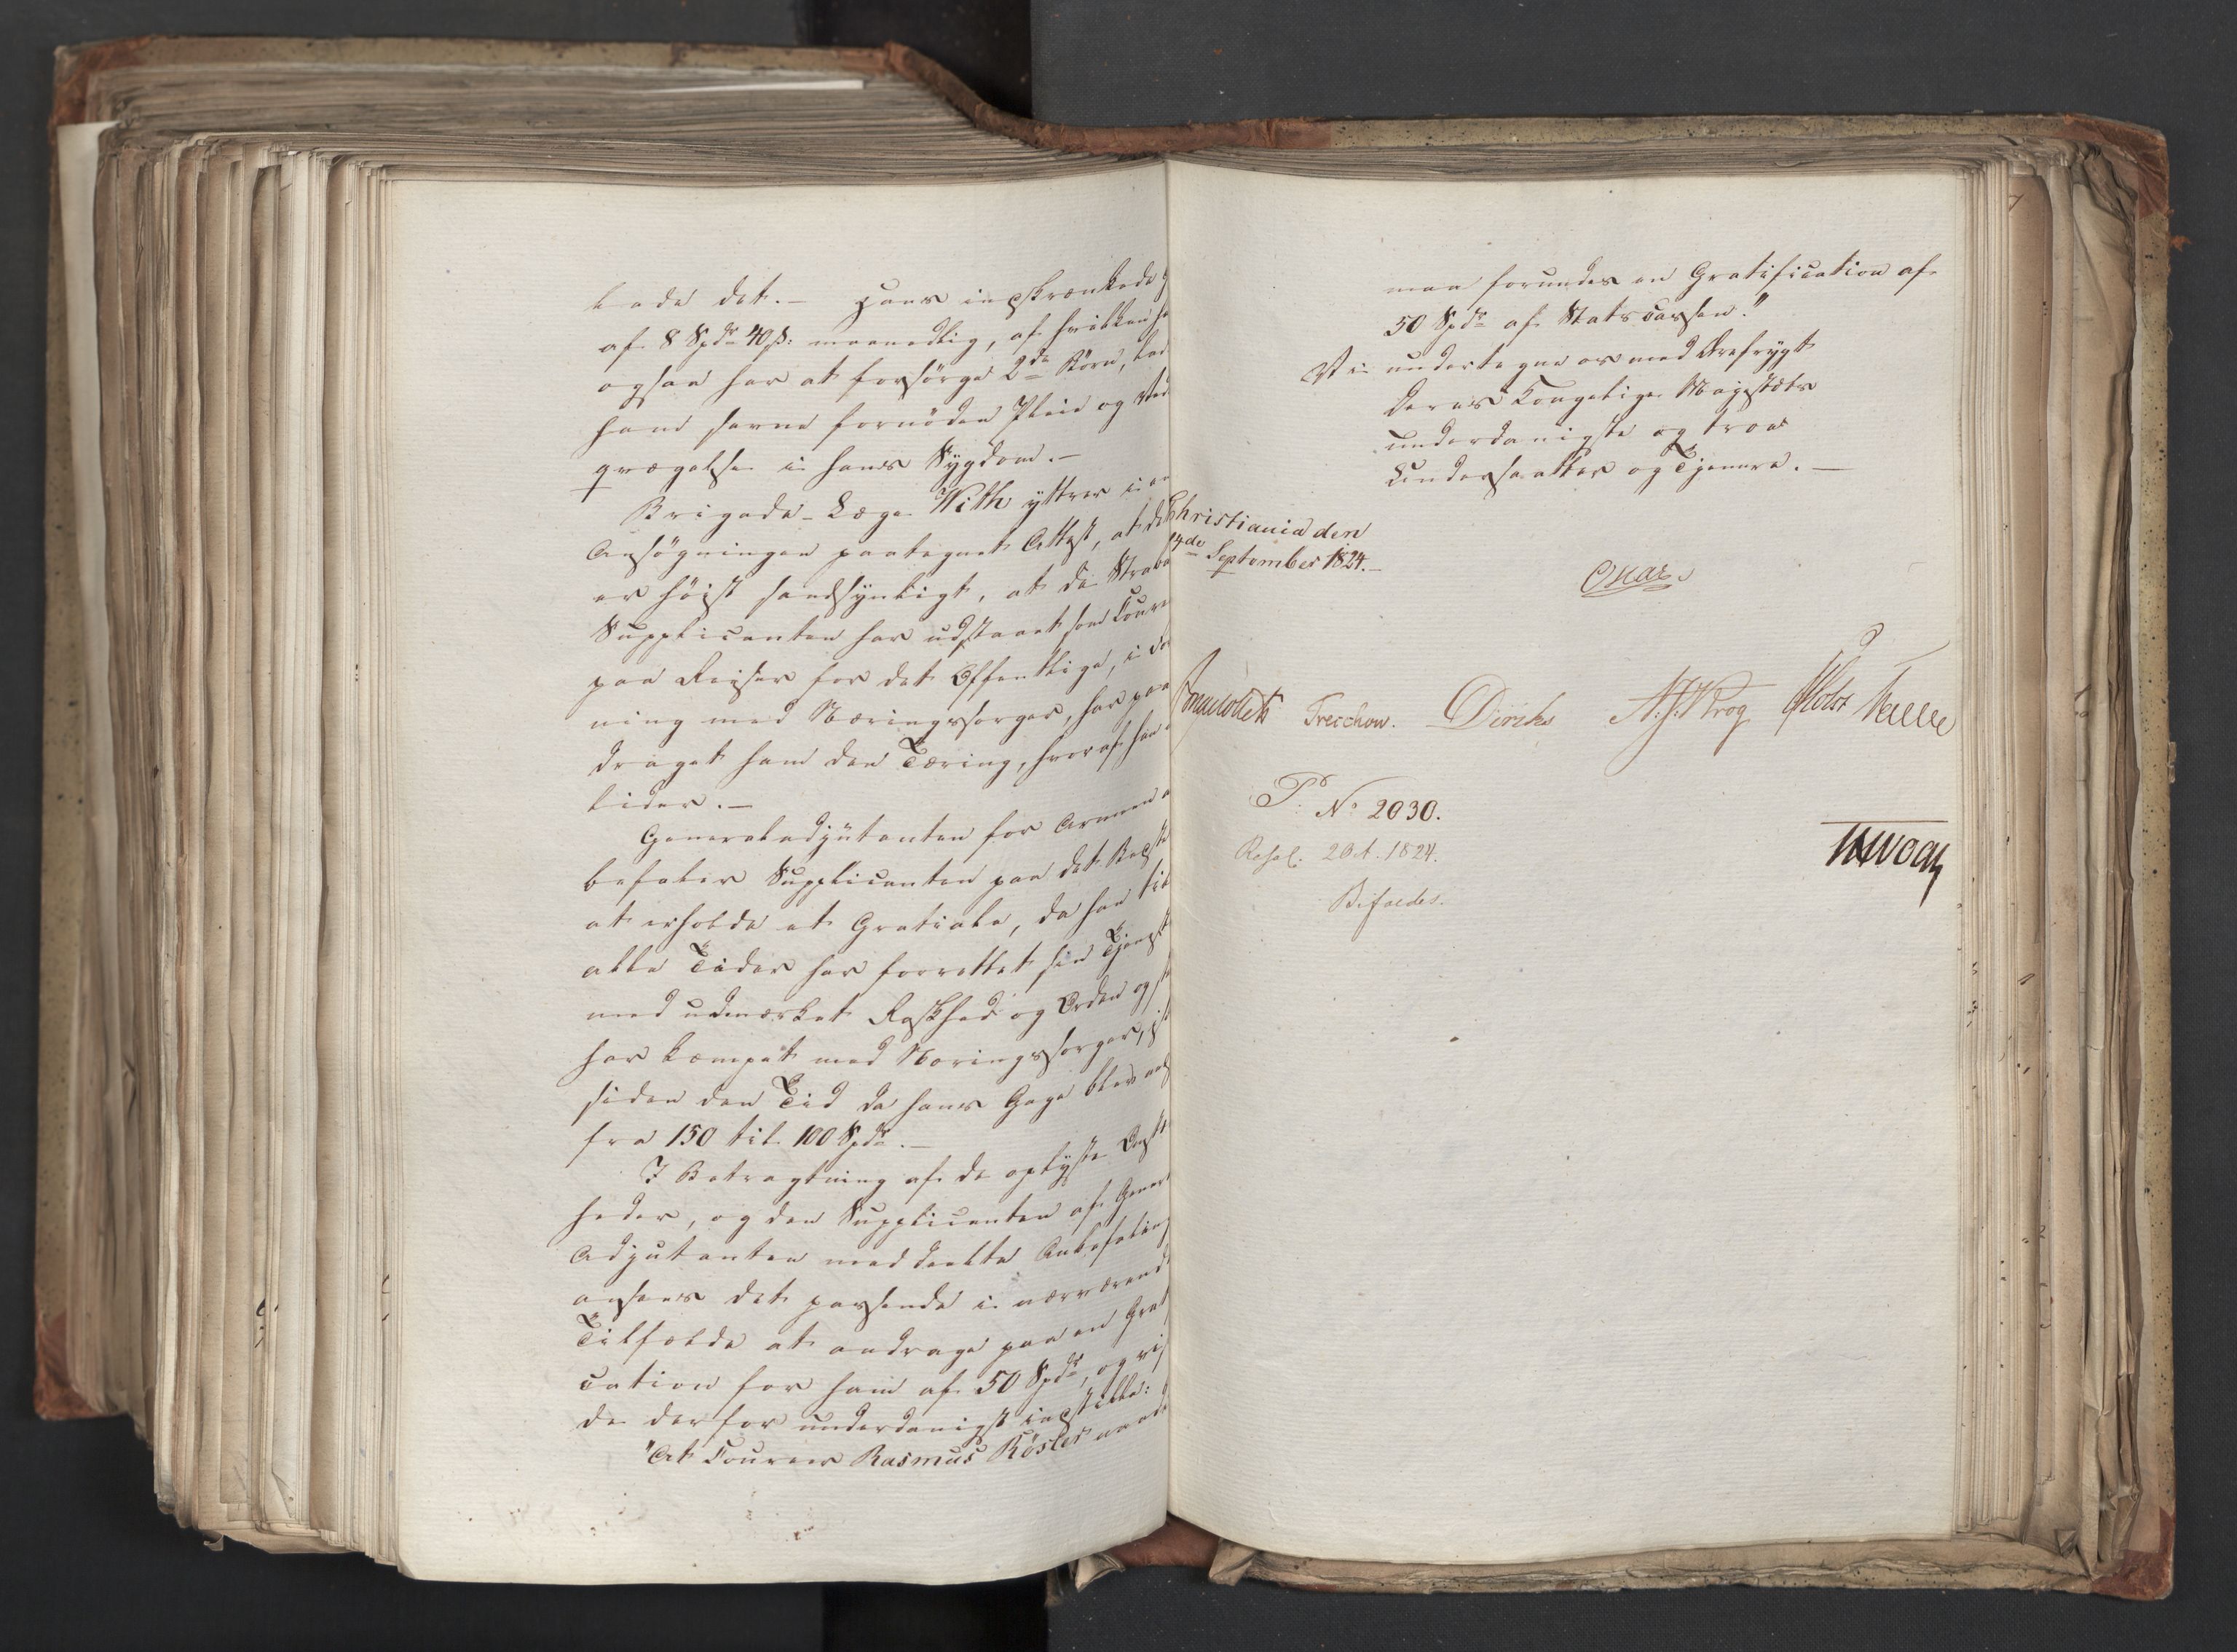 lade det. — Hans indskrænkede
af 8 Spdr 40 ß: maanedlig, af hvilken
ogsaa har at forsörge 2de Börn, lod
ham savne fornöden Pleie og Ved
qvægelse i hans Sygdom. —
Brigade-Læge With yttrer i en
Ansögningen paategnet Attest, at det
er höist sandsynligt, at de Straba
Supplicanten har udstaaet som Coure
paa Reiser for det Offentlige, i
ning med Næringssorger, har paa
draget ham den Tæring, hvoraf han
lider. —
Generaladjutanten for Armeen
befaler Supplicanten paa det Bedste
at erholde et Gratiale, da han til
alle Tider har forrettet sin Tjenest
med udmærket Raskhed og Orden og
har kæmpet med Næringssorger,
siden den Tid da hans Gage blev
fra 150 til 100 Spdr. —
I Betragtning af de oplyste Omst
heder, og den Supplicanten af General
Adjutanten meddeelte Anbefaling
ansees det passende i nærværende
Tilfælde at andrage paa en Grat
cation for ham af 50 Spdr, og
de derfor underdanigst indstille:
"At Coureer Rasmus Rösler naade
maa forundes en Gratification af
50 Spdr af Statscassen."
Vi undertegne os med Ærefrygt
Deres Kongelige Majestæts
underdanigste og troe
Undersaatter og Tjenere. —
Christiania den
14de September 1824. —
Oscar
Treschow. Diriks Krog Holst
P. No 2030.
Resol. 2 Oct. 1824.
Bifaldes.